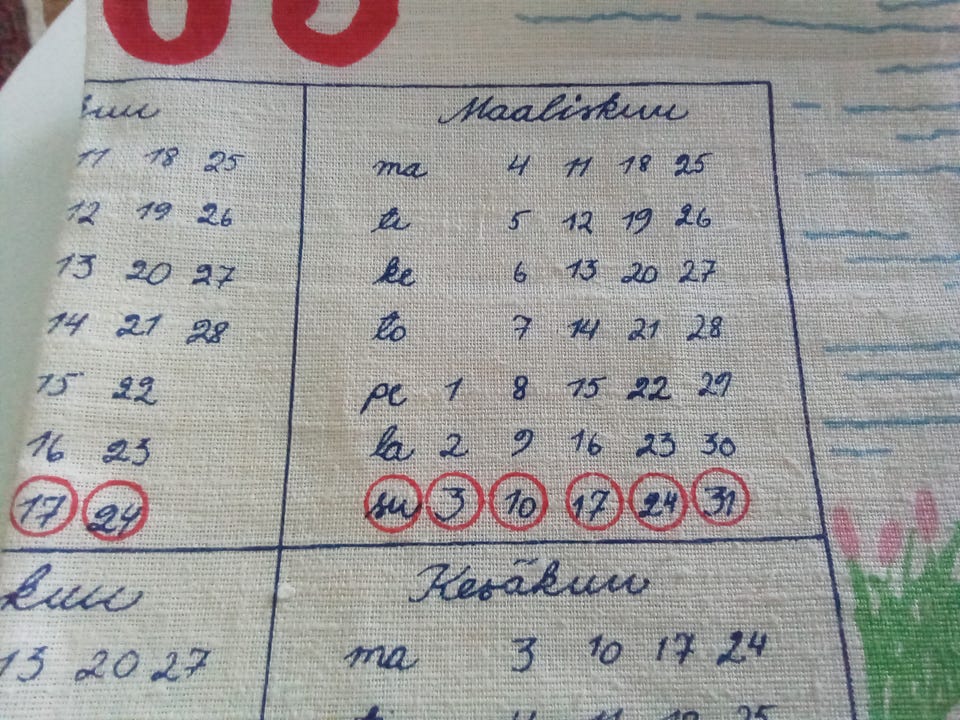 kuu
11 18 25
12 19 26
13 20 27
14 21 28
15 22
16 23
17 24
Maaliskuu
ma 4 11 18 25
ti 5 12 19 26
ke 6 13 20 27
to 7 14 21 28
pe 1 8 15 22 29
la 2 9 16 23 30
su 3 10 17 24 31
kuu
13 20 27
Kesäkuu
ma 3 10 17 24
ti 4 11 18 25